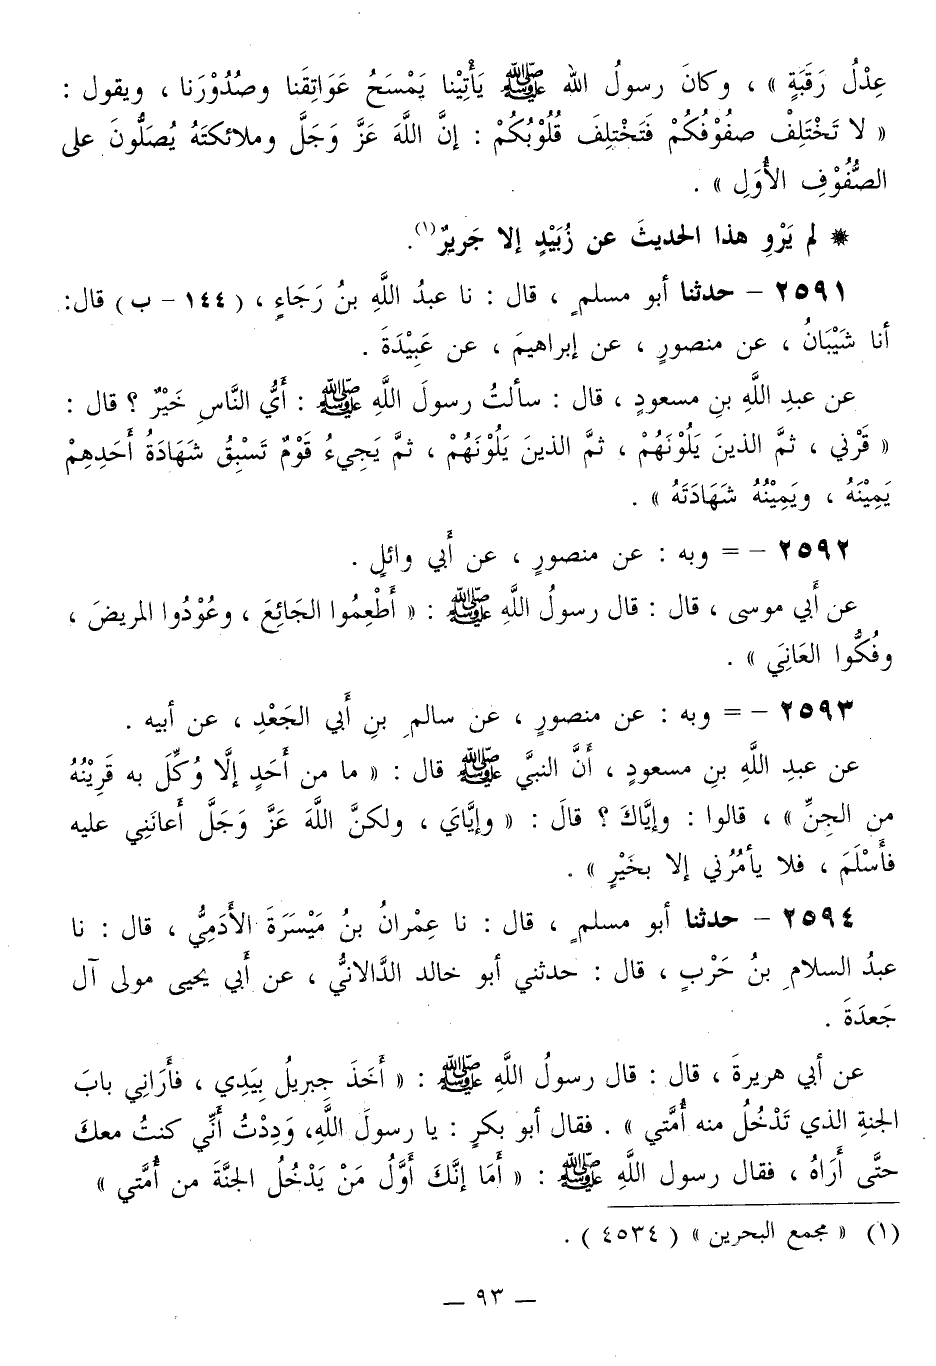 عِدْلُ رَقَبَةٍ » ، وكانَ رسولُ الله ﷺ يَأْتِيْنا يَمْسَحُ عَوَاتِقَنا وصُدُوْرَنا ، ويقول :
« لا تَخْتَلِفْ صفُوْفُكُمْ فَتَخْتَلِفَ قُلُوْبُكُمْ : إنَّ اللَّهَ عَزَّ وَجَلَّ وملائكتَهُ يُصَلُّونَ على
الصُّفُوْفِ الأُوَلِ » .
* لم يَرْوِ هذا الحديثَ عن زُبَيْدٍ إلا جَريرٌ(١).
٢٥٩١ – حدثنا أبو مسلمٍ ، قال : نا عبدُ اللَّهِ بنُ رَجَاءٍ ، ( ١٤٤ – ب ) قال:
أنا شَيْبَانُ ، عن منصورٍ ، عن إبراهيمَ ، عن عَبِيْدَةَ .
عن عبدِ اللَّهِ بنِ مسعودٍ ، قال : سألتُ رسولَ اللَّهِ ﷺ : أَيُّ النَّاسِ خَيْرٌ ؟ قال :
« قَرْني ، ثمَّ الذينَ يَلُوْنَهُمْ ، ثمَّ الذينَ يَلُوْنَهُمْ ، ثمَّ يَجِيءُ قَوْمٌ تَسْبِقُ شَهَادَةُ أَحَدِهِمْ
يَمِيْنَهُ ، ويَمِيْنُهُ شَهَادَتَهُ » .
٢٥٩٢ – = وبه : عن منصورٍ ، عن أَبي وائلٍ .
عن أَبي موسى ، قال : قال رسولُ اللَّهِ ﷺ : « أَطْعِمُوا الجَائِعَ ، وعُوْدُوا المريضَ ،
وفُكُّوا العَانِيَ » .
٢٥٩٣ – = وبه : عن منصورٍ ، عن سالمِ بنِ أَبي الجَعْدِ ، عن أبيه .
عن عبدِ اللَّهِ بنِ مسعودٍ ، أَنَّ النبيَّ ﷺ قال : « ما من أَحَدٍ إلَّا وُكِّلَ به قَرِيْنُهُ
من الجِنِّ » ، قالوا : وإيَّاكَ ؟ قالَ : « وإيَّايَ ، ولكنَّ اللَّهَ عَزَّ وَجَلَّ أَعانَنِي عليه
فأَسْلَمَ ، فلا يأمُرُني إلا بخَيْرٍ » .
٢٥٩٤ – حدثنا أبو مسلمٍ ، قال : نا عِمْرانُ بنُ مَيْسَرَةَ الأَدَمِيُّ ، قال : نا
عبدُ السلامِ بنُ حَرْبٍ ، قال : حدثني أبو خالد الدَّالانيُّ ، عن أَبي يحيى مولى آل
جَعدَةَ .
عن أَبي هريرةَ ، قال : قال رسولُ اللَّهِ ﷺ : « أَخَذَ جِبريلُ بِيَدِي ، فأَرَانِي بابَ
الجنةِ الذي تَدْخُلُ منه أُمَّتي » . فقال أبو بكرٍ : يا رسولَ اللَّهِ، وَدِدْتُ أَنِّي كنتُ معكَ
حتَّى أَرَاهُ ، فقال رسول اللَّهِ ﷺ : « أَمَا إنَّكَ أَوَّلُ مَنْ يَدْخُلُ الجنَّةَ من أُمَّتي »
(١) « مجمع البحرين » ( ٤٥٣٤ ) .
– ٩٣ –